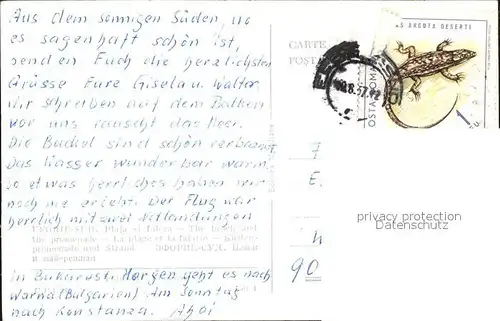 Aus dem sonnigen Süden, wo
es sagenhaft schön ist,
senden Euch die herzlichsten
Grüsse Eure Gisela u. Walter
wir schreben auf dem Balkon
vor uns rauscht das Meer.
Die Buckel sind schön verbrannt
Das Wasser wunderbar warm
so etwas herrliches haben wir
noch nie erlebt. Der Flug war
herrlich mit zwei Notlandungen
EFORIE-SUD. Plaja si faleza - The beach and
the promenade - La plage et la falaise -
promenade und Strand ЭФОРИЕ-СУД. Пляж
и набережная
in Bukarest. Morgen geht es nach
Warna (Bulgarien). Am Sonntag
nach Konstanza. Ahoi
CARTE
POSTA
AREOTA DESERTI
POSTA ROMA
7
E.
W
90
privacy protection
Datenschutz